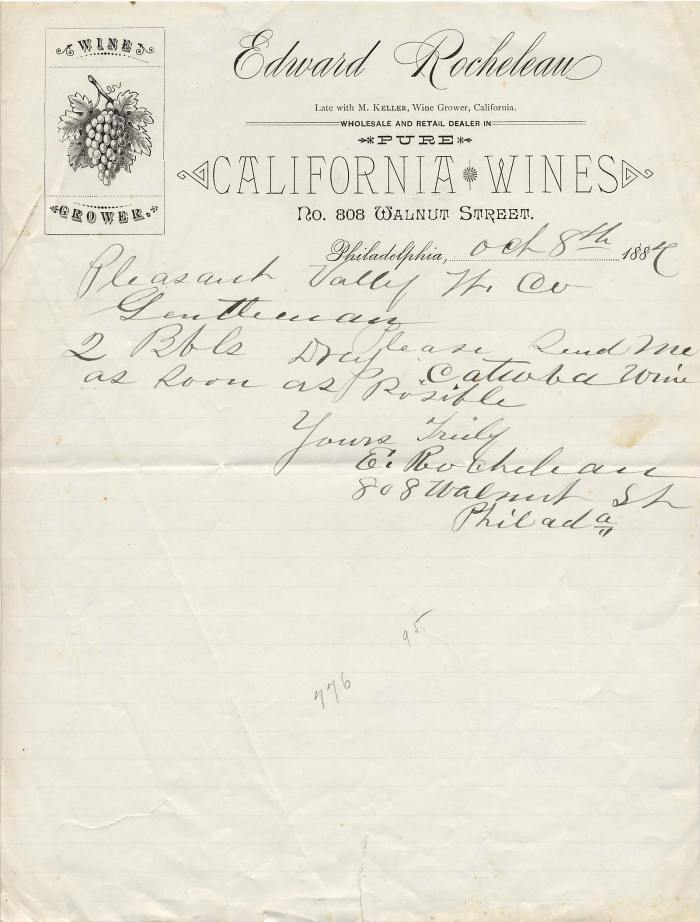 WINE
GROWER.
Edward Rocheleau
Late with M. KELLER, Wine Grower, California.
WHOLESALE AND RETAIL DEALER IN
PURE
CALIFORNIA WINES
No. 808 WALNUT STREET.
Philadelphia, Oct 8th 188
Pleasant Vally W. Co
Gentleman
Please Send Me
2 Bbls Dry Catwba Wine
as Soon as Posible
Yours Truly
E. Rocheleau
808 Walnut St
Philada
95
776